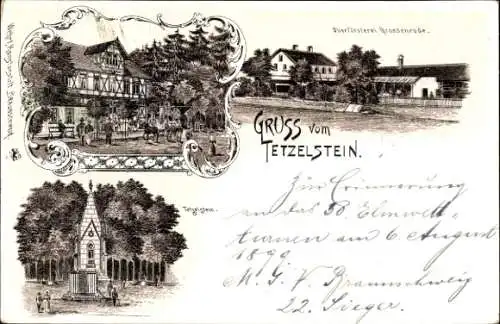 Oberförsterei Brandenrode.
GRUSS vom
TETZELSTEIN.
Tetzelstein.
Zur Erinnerung
an das 50. Elmwett-
turnen am 6. August
1899
M. T. V. Braunschweig
22. Sieger.